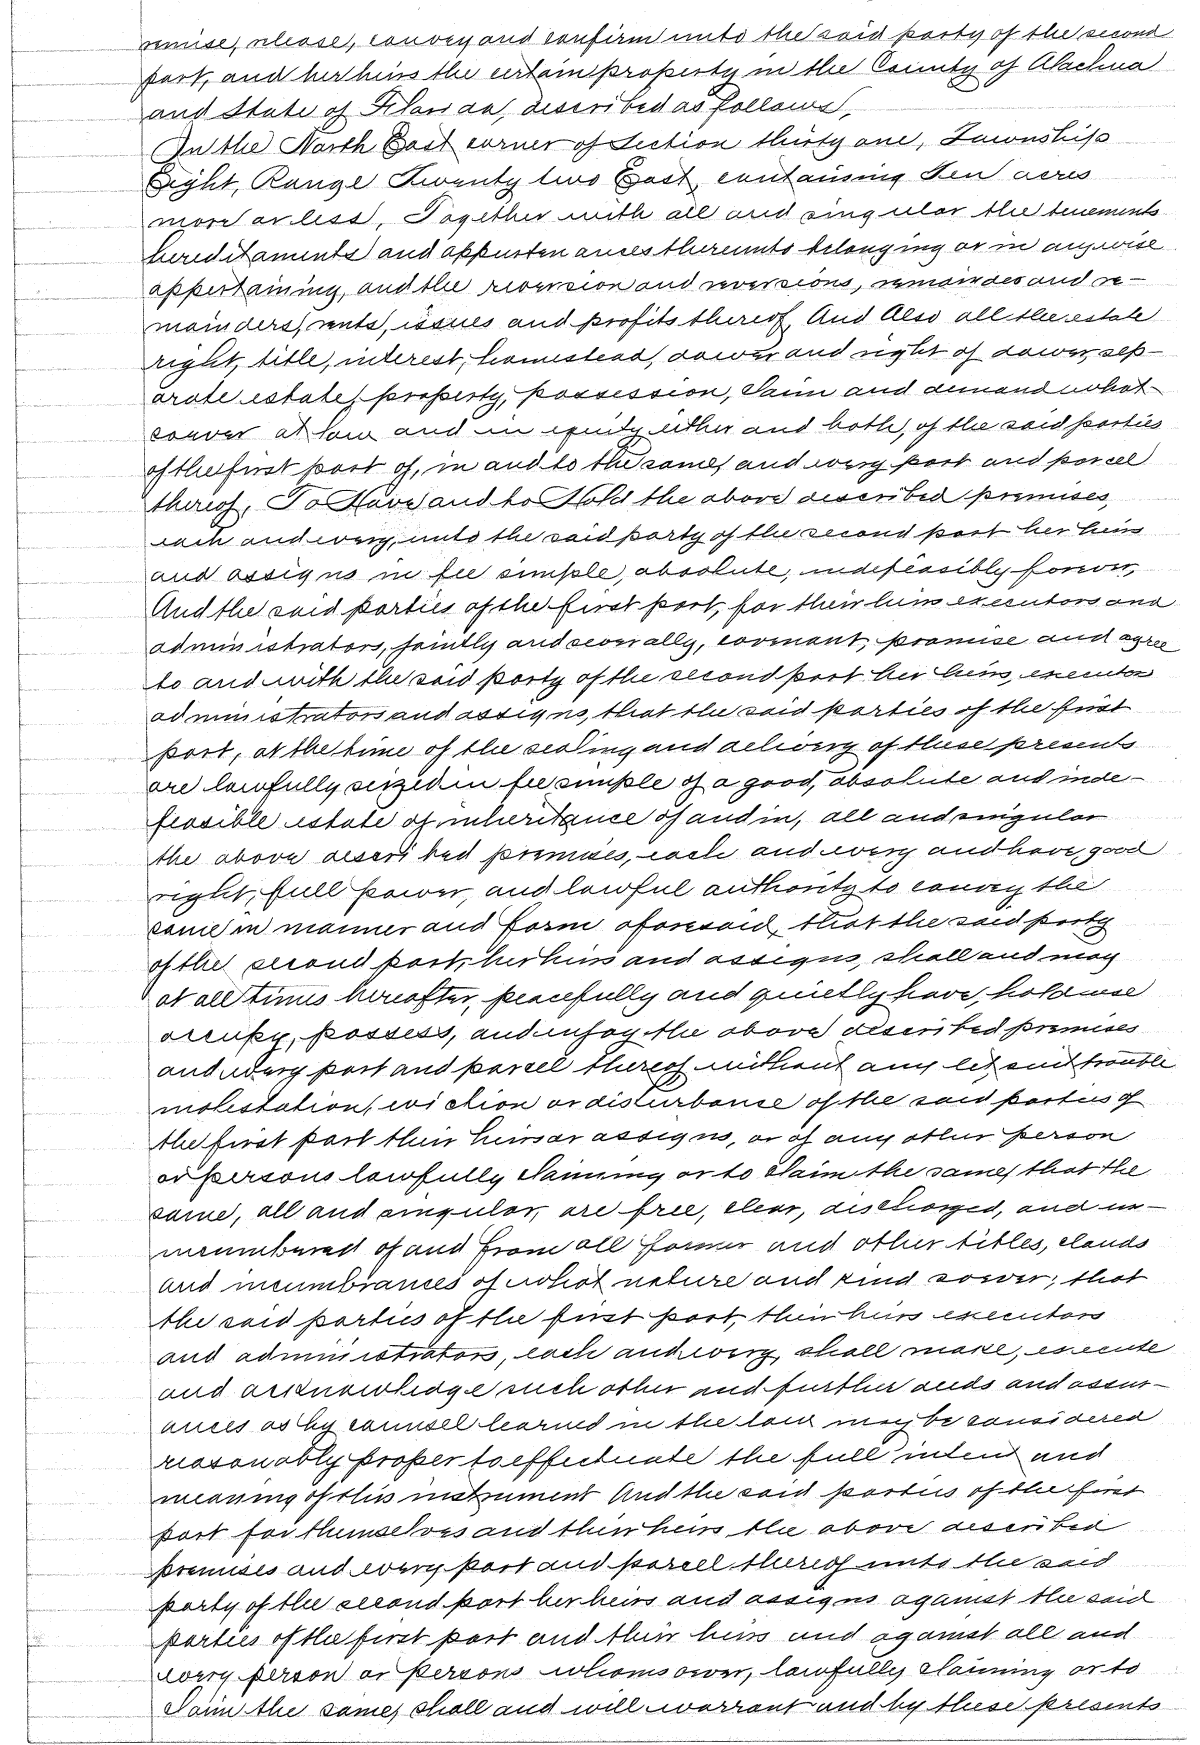 remise, release, convey and confirm unto the said party of the second
part, and her heirs the certain property in the County of Alachua
and State of Florida, described as follows,
In the North East corner of Section thirty one, Township
Eight, Range Twenty two East, containing Ten acres
more or less, Together with all and singular the tenements
hereditaments and appurtenances thereunto belonging or in anywise
appertaining, and the reversion and reversions, remainder and re-
mainders, rents, issues and profits thereof, And Also all the estate
right, title, interest, homestead, dower and right of dower, sep-
arate estate, property, possession, claim and demand what-
soever at law and in equity either and both, of the said parties
of the first part of, in and to the same, and every part and parcel
thereof, To Have and to Hold the above described premises,
each and every, unto the said party of the second part her heirs
and assigns in fee simple, absolute, indefeasibly forever,
And the said parties of the first part, for their heirs executors and
administrators, jointly and severally, covenant, promise and agree
to and with the said party of the second part her heirs, executors
administrators and assigns, that the said parties of the first
part, at the time of the sealing and delivery of these presents
are lawfully seized in fee simple of a good, absolute and inde-
feasible estate of inheritance of and in, all and singular
the above described premises, each and every and have good
right, full power, and lawful authority to convey the
same in manner and form aforesaid, that the said party
of the second part, her heirs and assigns, shall and may
at all times hereafter, peacefully and quietly have, hold use
occupy, possess, and enjoy the above described premises
and every part and parcel thereof without any let suit trouble
molestation, eviction or disturbance of the said parties of
the first part their heirs or assigns, or of any other person
or persons lawfully claiming or to claim the same, that the
same, all and singular, are free, clear, discharged, and un-
incumbered of and from all former and other titles, clouds
and incumbrances of what nature and kind soever; that
the said parties of the first part, their heirs executors
and administrators, each and every, shall make, execute
and acknowledge such other and further deeds and assur-
ances as by counsel learned in the law may be considered
reasonably proper to effectuate the full intent and
meaning of this instrument And the said parties of the first
part for themselves and their heirs, the above described
premises and every part and parcel thereof unto the said
party of the second part her heirs and assigns against the said
parties of the first part and their heirs and against all and
every person or persons whomsoever, lawfully claiming or to
claim the same, shall and will warrant and by these presents